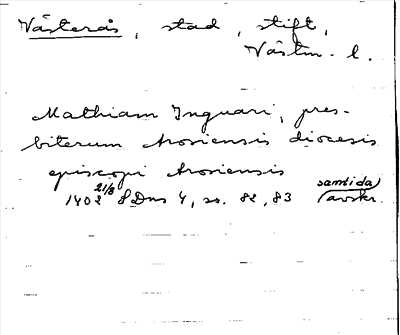 Västerås, stad, stift,
Västm. l.
Mathiam Inguari, pres-
biterum Arosiensis diocesis
episcopi Arosiensis
1402 21/8 SDns 1, ss. 82, 83 samtida avskr.